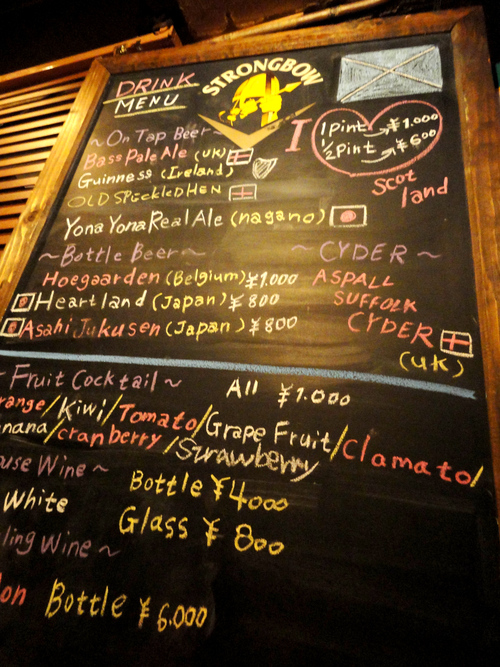 STRONGBOW
DRINK
MENU
~ On Tap Beer ~
Bass Pale Ale (UK)
Guinness (Ireland)
OLD SPECKLED HEN
Yona Yona Real Ale (nagano)
I
1 Pint → ¥1.000
1/2 Pint → ¥600
Scot
land
~ Bottle Beer ~
Hoegaarden (Belgium) ¥1.000
Heartland (Japan) ¥800
Asahi Jukusen (Japan) ¥800
~ CYDER ~
ASPALL
SUFFOLK
CYDER
(UK)
Fruit Cocktail ~ All ¥1.000
range/Kiwi/Tomato/Grape Fruit/Clamato/
nana/cranberry/Strawberry
use Wine ~
White Bottle ¥4000
Glass ¥800
ling Wine ~
on Bottle ¥6.000